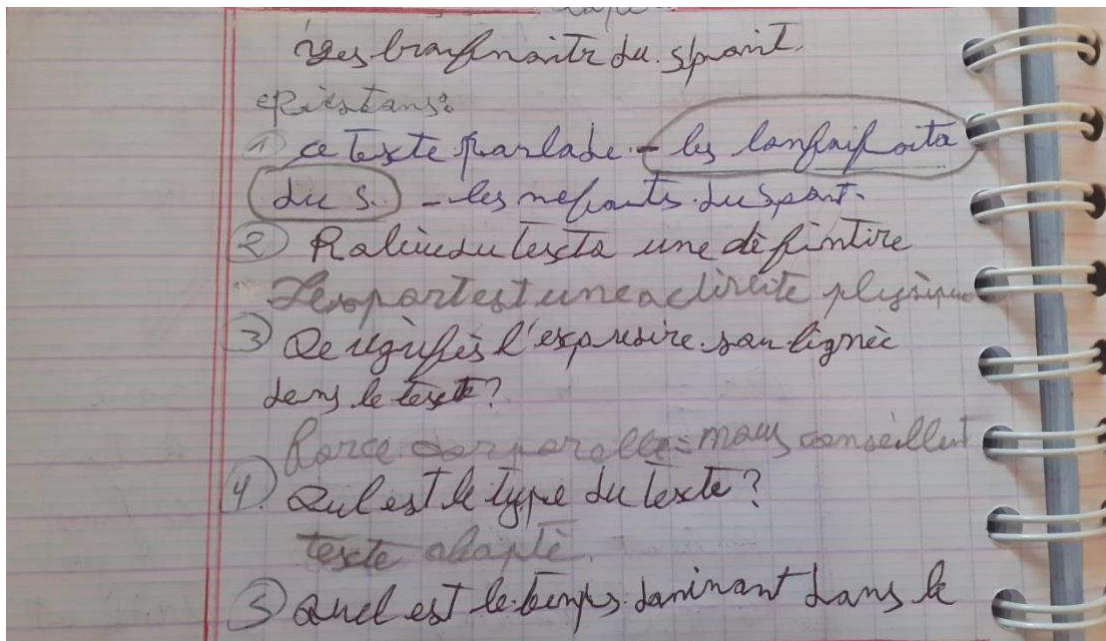 les bianfinaitr du spont.
Qiestans:
1 ce texte parlade - les lanfaifaita
du s. - les mefaits du spont.
2 Raliue du texta une définitire
Le sport est une aclirite plysique
3 Qe régiifiès l'exprusire sau lignèe
dans le texte?
Force corporelle = mous conseillent
4. Qul est le type du texte?
texte adaptè.
5 Quel est le temps daminant dans le